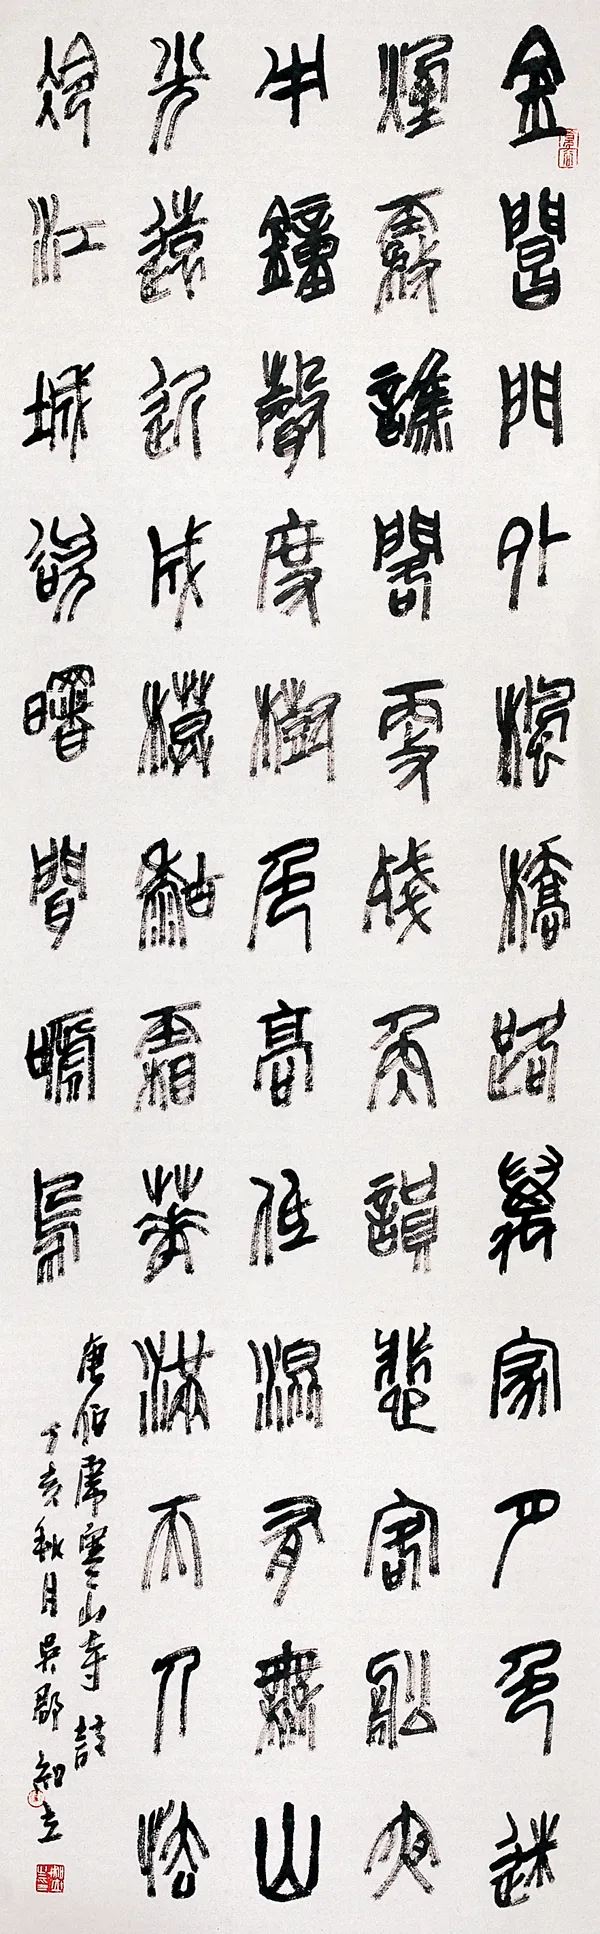 金閶門外楓橋路萬家月色迷
煙霧譙閣更殘角韻悲客船夜
半鐘聲度樹色高低混有無山
光遠近成模糊霜華滿天人怯
冷江城欲曙聞嗁烏
唐伯虎寒山寺詩
丁亥秋月吳郡